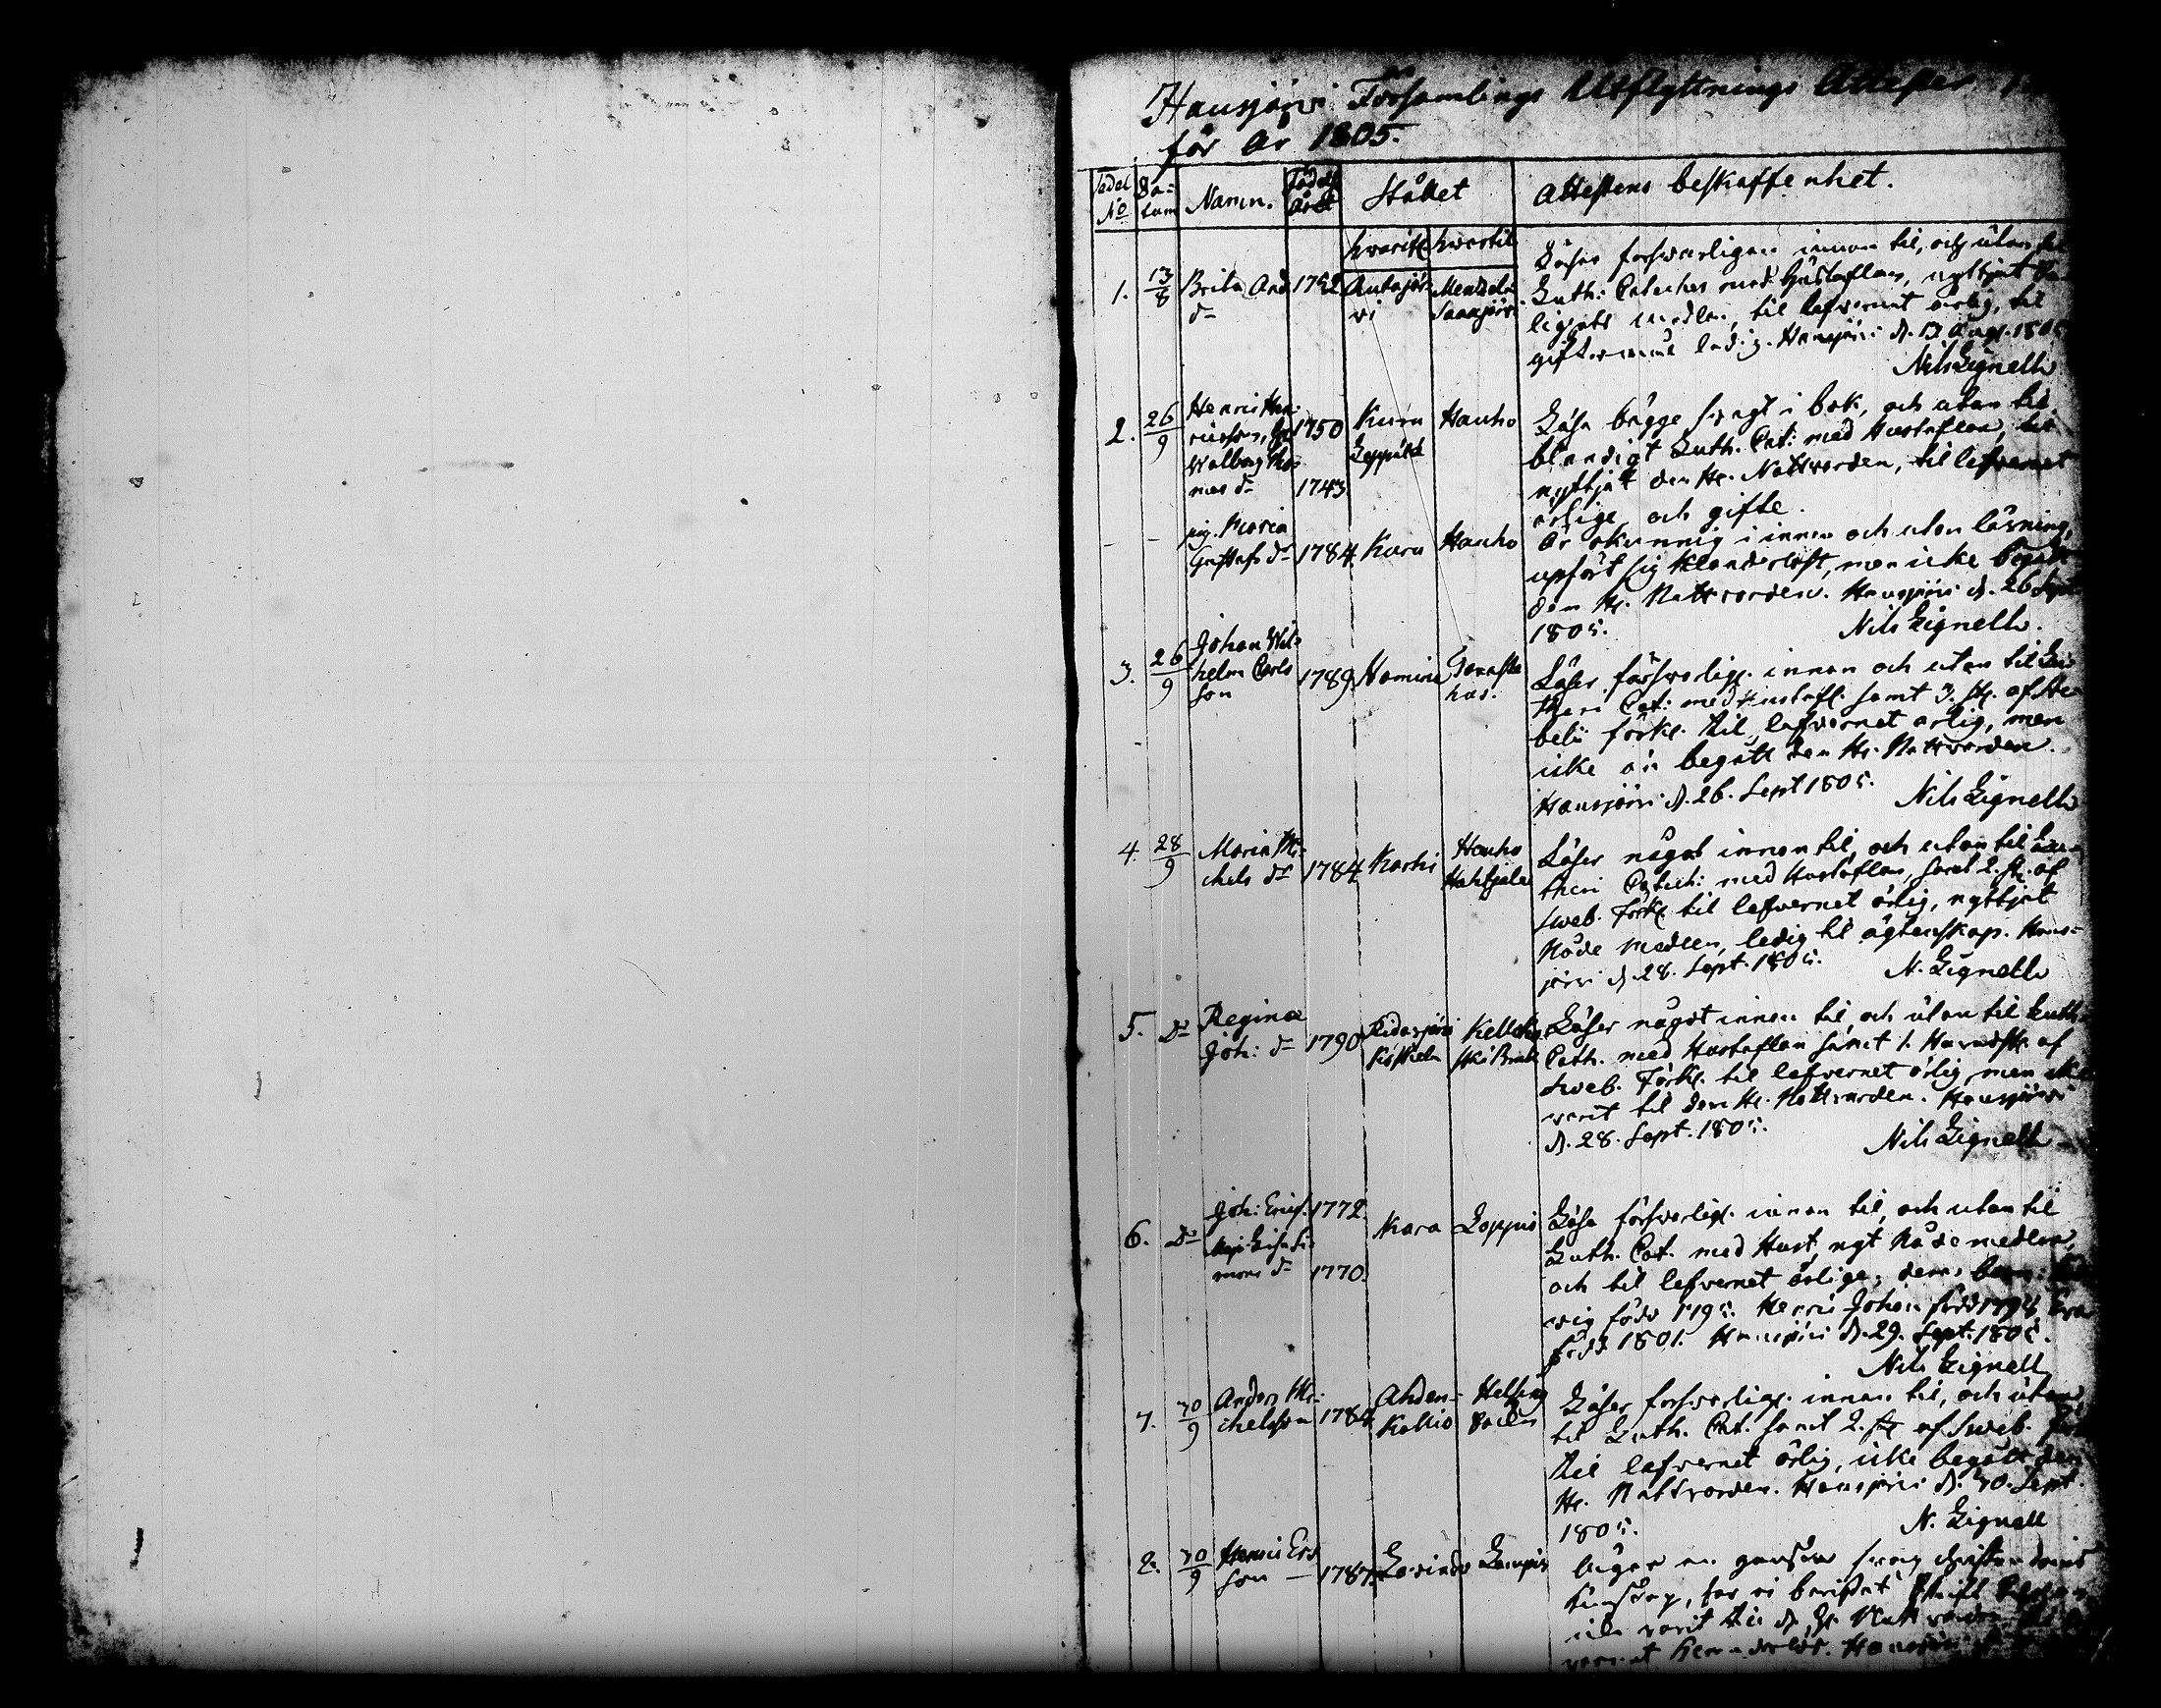 Hausjärvi Församlings Utflyttnings Attester
för År 1805.
Sedel No Da=tum Namn. Födelse Året Stället Attestens beskaffenhet.
hvarifr. hvartil
1. 13/8 Brita And. dr 1752 Autajärvi
Läser forsvarligen innan til, och utan til
Luth: Cateches med Hustaflan, nyttjat Sa-
lighets medlen, til lefvernet ärlig, til
giftermål ledig. Hausjärvi d. 13 Aug. 1805
Nils Lignell
2. 26/9 Henric Hen-
ricsson, Hu.
Walborg Tho-
mas dr 1750 1743 Kuru Leppälä Hauho
Läsa bägge svagt i bok, och utan til
Luth. Cat: med Hustaflan,
nyttjat den H. Nattvarden, til lefvernet
ärlige och gifte.
pig. Maria
Gustafs dr 1784 Kara Hauho
Är okunnig i innan och utan läsning,
upfört sig klanderlöst, men icke begått
den H. Nattvarden. Hausjärvi d. 26 Sept
1805. Nils Lignell.
3. 26/9 Johan Wil-
helm Carls
son 1789 Nomine Tavaste
hus.
Läser försvarlig. innan och utan til Lu-
theri Cat: med Hustafl. samt 3. st. af Swe-
belii förkl. til lefvernet ärlig, men
icke än begått den H. Nattvarden.
Hausjärvi d. 26. Sept 1805. Nils Lignell
4. 28/9 Maria Mi-
chels dr 1784 Karhi Hauho
Hahkjala
Läser något innan til, och utan til Lu-
theri Catech: med Hustaflan, samt 2. st. af
Sweb. Förkl. til lefvernet ärlig, nyttjat
Nåde Medlen, ledig til ägtenskap. Haus-
järvi d. 28. Sept. 1805. N. Lignell
5. Do Regina
Joh: dr 1790 Ridasjärvi
Läser något innan til, och utan til Luth.
Cath. med Hustaflan samt 1. Hufvudst. af
Sweb. Förkl. til lefvernet ärlig, men icke
varit til den H. Nattvarden. Hausjärvi
d. 28. Sept. 1805. Nils Lignell
6. Do Joh: Erics. 1772
Maja Lisa Si-
mons dr 1770. Kara Loppis
Läsa försvarlig. innan til, och utan til
Luth. Cat. med Hust, nyt Nåde medlen,
och til lefvernet ärlige, deras barn:
vig född 1795. Henric Johan född 1798, Eva
född 1801. Hausjärvi d. 29. Sept. 1805.
Nils Lignell
7. 30/9 Anders Mi-
chelsson 1784 Ahden-
kallio Helsing
Läser forsvarlig. innan til, och utan
til Luth. Cat. samt 2. st. af Sweb. för
til lefvernet ärlig, icke begått den
H. Nattvarden. Hausjärvi d. 30. Sept.
1805. N. Lignell
8. 30/9 Henric Ers
son 1787 Lampis
äger en ganska svag christendoms
kunskap,
icke varit til d. H. Nattvarden
Hausjärvi